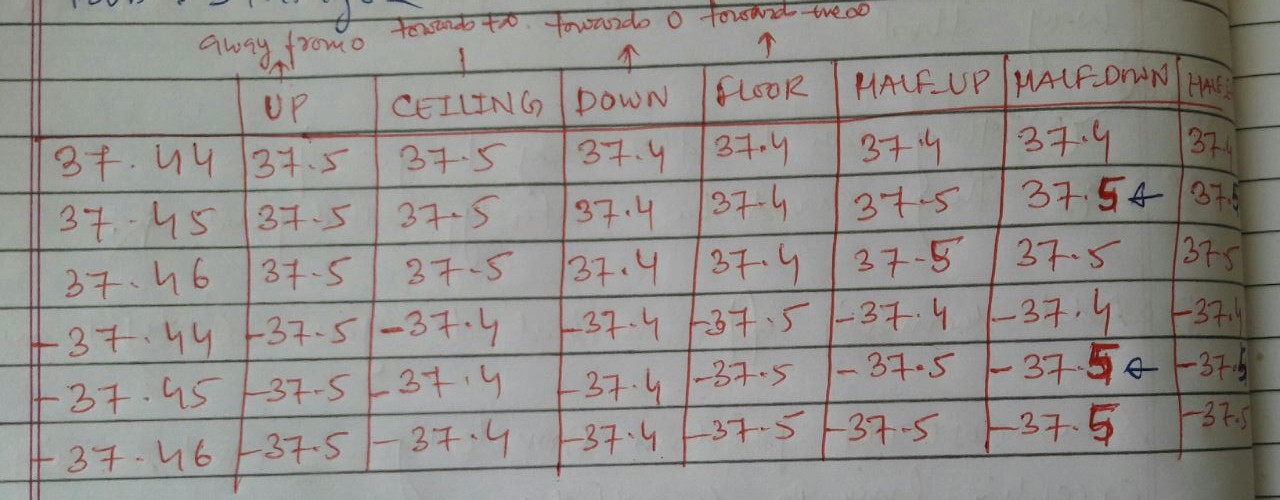 away from 0 towards +∞. towards 0 toward -ve∞
UP CEILING DOWN FLOOR HALF_UP HALF_DOWN
37.44 37.5 37.5 37.4 37.4 37.4 37.4 37.4
37.45 37.5 37.5 37.4 37.4 37.5 37.5 37.5
37.46 37.5 37.5 37.4 37.4 37.5 37.5 37.5
-37.44 -37.5 -37.4 -37.4 -37.5 -37.4 -37.4 -37.4
-37.45 -37.5 -37.4 -37.4 -37.5 -37.5 -37.5 -37.5
-37.46 -37.5 -37.4 -37.4 -37.5 -37.5 -37.5 -37.5